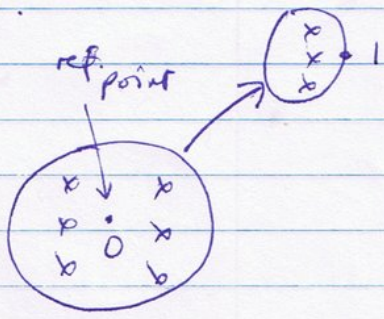 ref.
point
x
x
x
1
x x
x x
0
x x